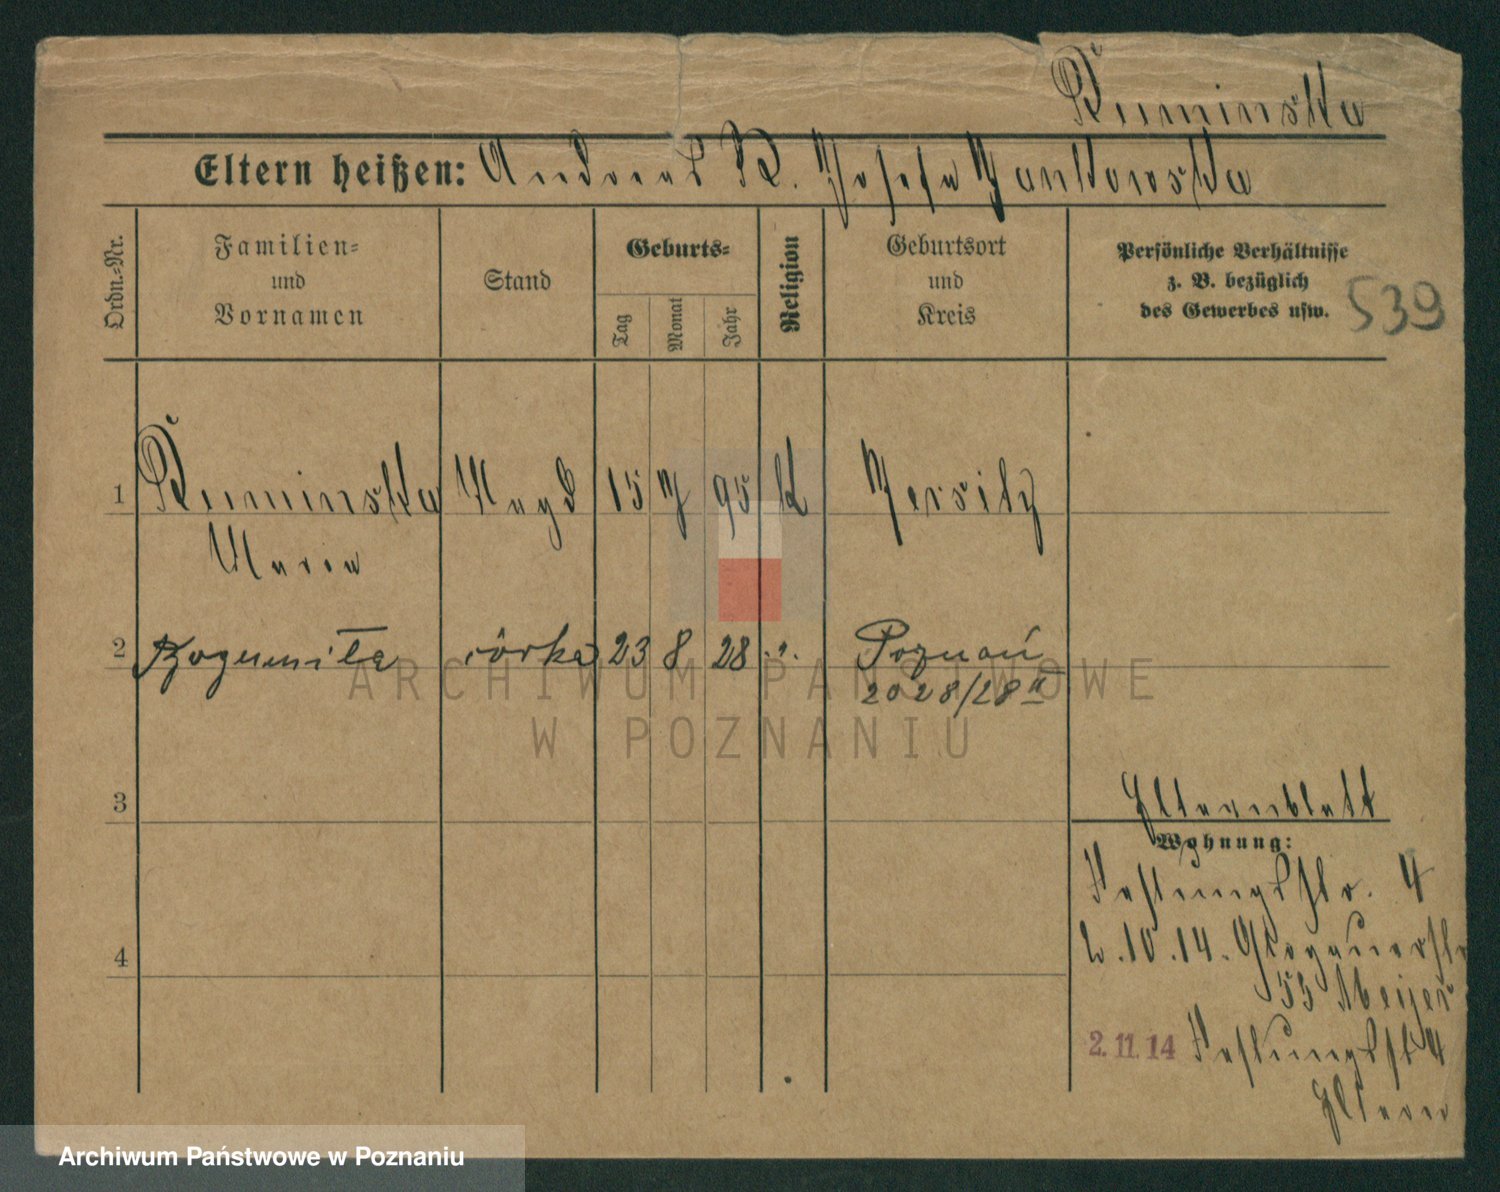 Ruminska
Eltern heißen: Andreas R. Josefa Jankowska
Ordn.-Nr.
Familien-
und
Vornamen
Stand
Geburts-
Tag
Monat
Jahr
Religion
Geburtsort
und
Kreis
Persönliche Verhältnisse
z. B. bezüglich
des Gewerbes usw.
539
1 Ruminska Magd 15 95 K Jersitz
Maria
2 Bogumiła córka 23 8 28 Poznań
2028/28 II
3
Elternblatt
Wohnung:
Festungsstr. 4
2.10.14. Glogauerstr
53 Meijer
4
2.11.14 Festungsst 4
Eltern
ARCHIWUM PAŃSTWOWE
W POZNANIU
Archiwum Państwowe w Poznaniu